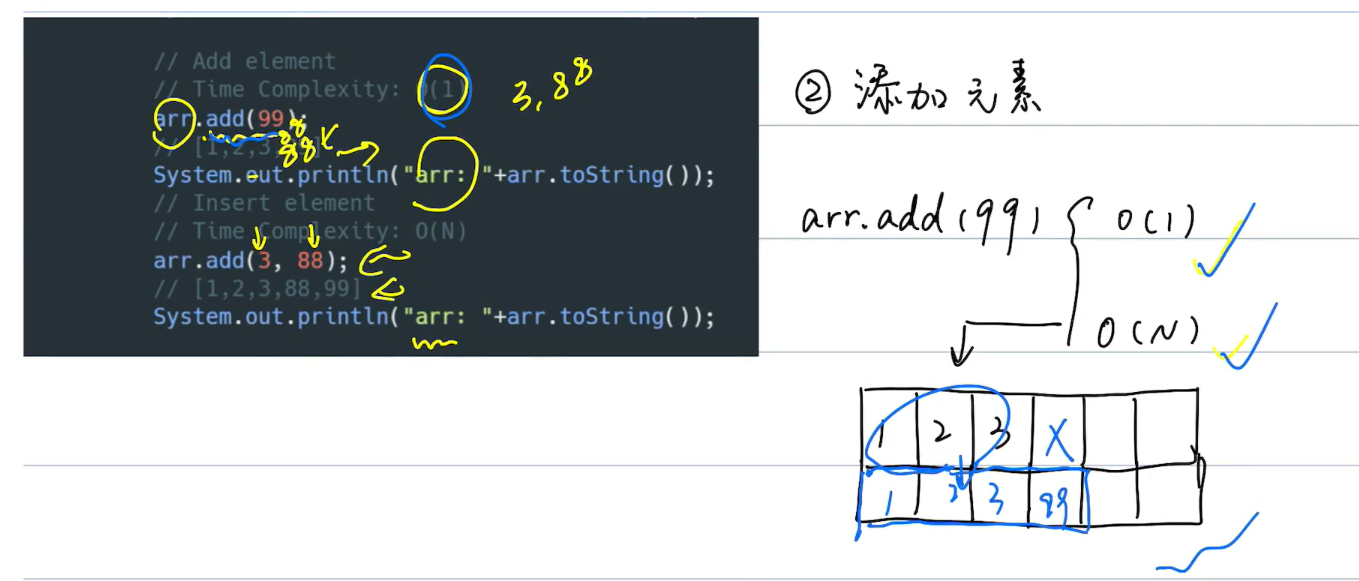 // Add element
// Time Complexity: O(1)
arr.add(99);
// [1,2,3,99]
System.out.println("arr: "+arr.toString());
// Insert element
// Time Complexity: O(N)
arr.add(3, 88);
// [1,2,3,88,99]
System.out.println("arr: "+arr.toString());
3,88
88
② 添加元素
arr.add(99) { O(1)
O(N)
1 2 3 X
1 2 3 99